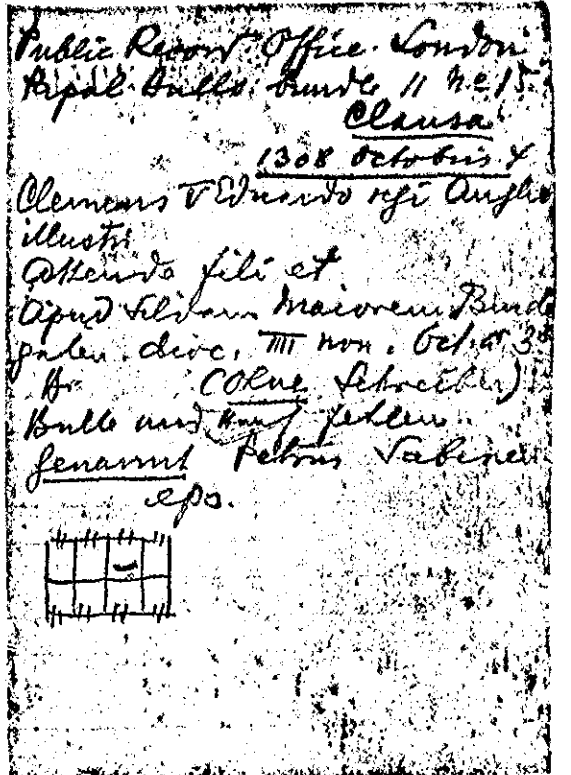 Public Record Office. London
Papal Bulls, bundle 11 No 15.
Clausa
1308 Octobris 4
Clemens V Eduardo regi Anglie
illustri
Attende fili et
Apud Silvam Maiorem Burde
galen. dioc. IIII non. Oct. ao 3o
(Ohne Schreiber)
Bulle und Hanf fehlen.
Genannt Petrus Sabinen.
eps.